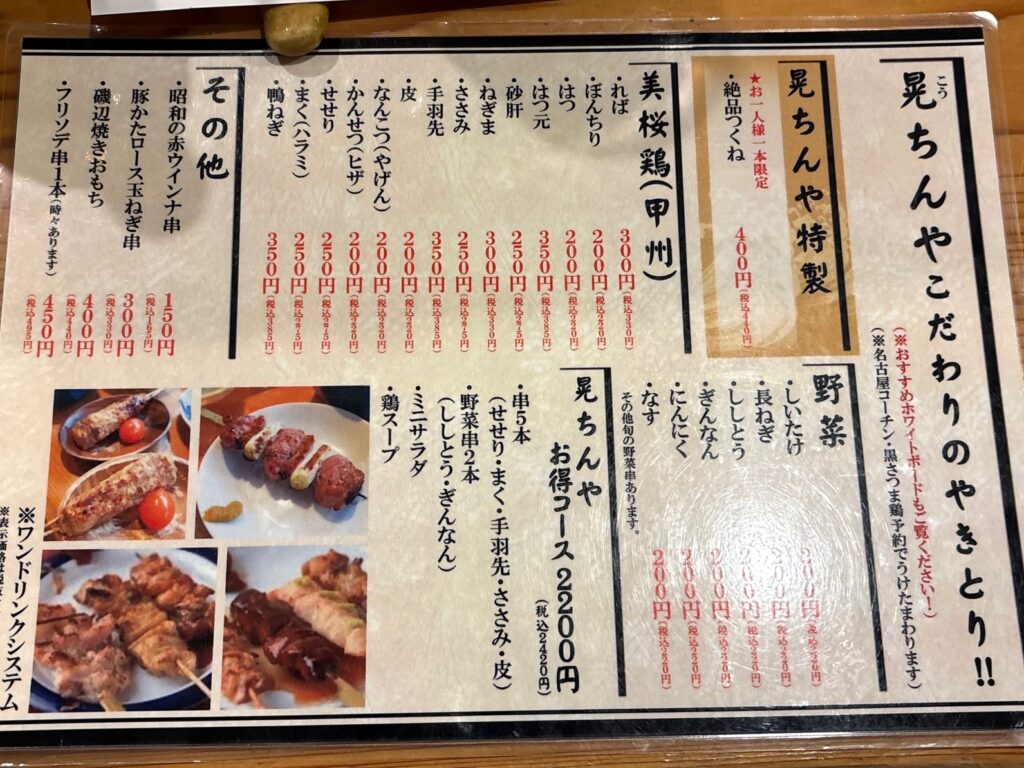 こう
晃ちんやこだわりのやきとり!!
(※おすすめホワイトボードもご覧ください!)
(※名古屋コーチン・黒さつま鶏予約でうけたまわります)
晃ちんや特製
★お一人様一本限定
・絶品つくね 400円(税込440円)
美桜鶏(甲州)
・れば 300円(税込330円)
・ぼんちり 200円(税込220円)
・はつ 200円(税込220円)
・はつ元 350円(税込385円)
・砂肝 250円(税込275円)
・ねぎま 300円(税込330円)
・ささみ 250円(税込275円)
・手羽先 350円(税込385円)
・皮 200円(税込220円)
・なんこつ(やげん) 200円(税込220円)
・かんせつ(ヒザ) 200円(税込220円)
・せせり 250円(税込275円)
・まく(ハラミ) 250円(税込275円)
・鴨ねぎ 350円(税込385円)
その他
・昭和の赤ウインナ串 150円(税込165円)
・豚かたロース玉ねぎ串 300円(税込330円)
・磯辺焼きおもち 400円(税込440円)
・フリソデ串1本(時々あります) 450円(税込495円)
野菜
・しいたけ 200円(税込220円)
・長ねぎ 200円(税込220円)
・ししとう 200円(税込220円)
・ぎんなん 200円(税込220円)
・にんにく 200円(税込220円)
・なす 200円(税込220円)
その他旬の野菜串あります。
晃ちんや
お得コース 2200円
(税込2420円)
・串5本
(せせり・まく・手羽先・ささみ・皮)
・野菜串2本
(ししとう・ぎんなん)
・ミニサラダ
・鶏スープ
※ワンドリンクシステム
※表示価格は税